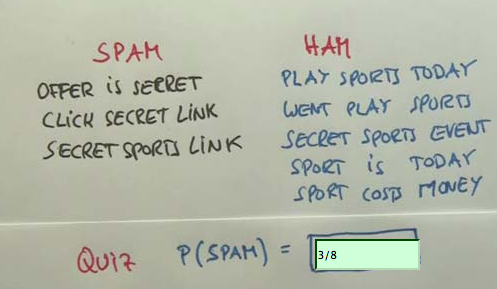 SPAM
OFFER IS SECRET
CLICK SECRET LINK
SECRET SPORTS LINK
HAM
PLAY SPORTS TODAY
WENT PLAY SPORTS
SECRET SPORTS EVENT
SPORT IS TODAY
SPORT COSTS MONEY
QUIZ P(SPAM) = 3/8